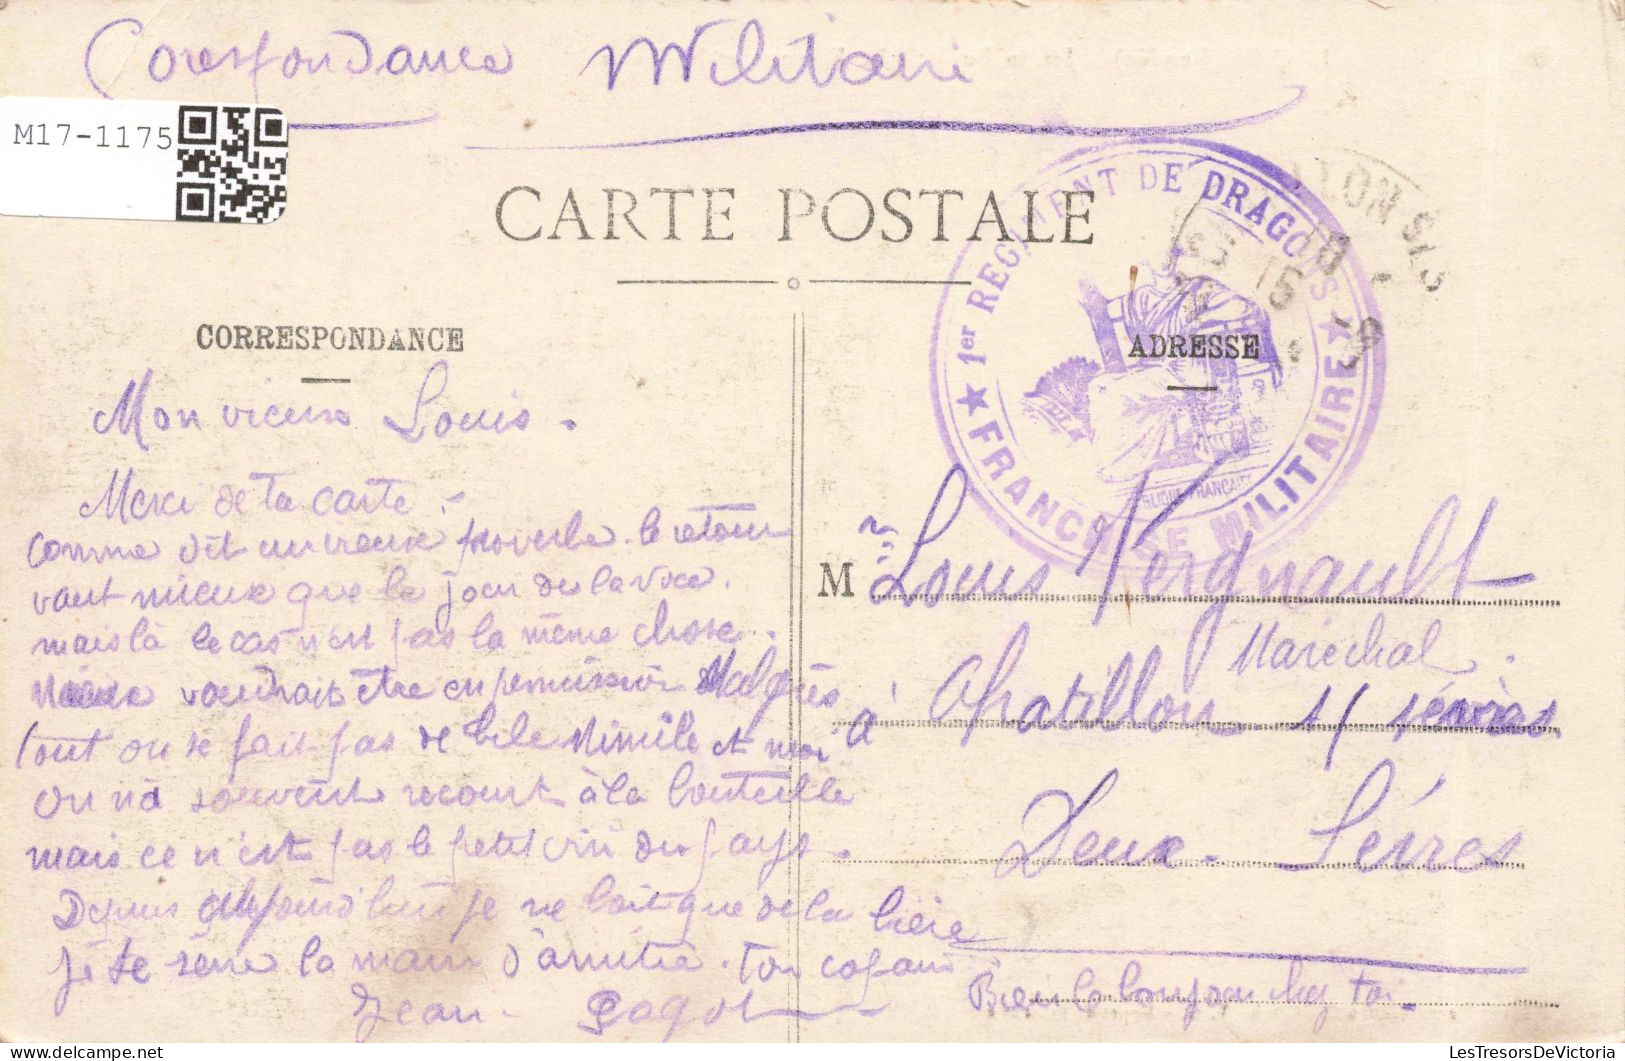 Corespondance Militaire
M17-1175
CARTE POSTALE
1er REGIMENT DE DRAGONS
FRANCHISE MILITAIRE
CORRESPONDANCE
ADRESSE
Mon vieux Louis.
Merci de ta carte.
comme dit un vieux proverbe. le retour
vaut mieux que le jour de la
mais là le cas n'est pas la même chose..
Mieux voudrais être en permission Malgrès
tout on se fait pas de bile Mimile et moi
on n'a souvent recourt à la bouteille
mais ce n'est pas le petit vin du pays.
Depuis je ne boit que de la bière
je te serre la main d'amitié. ton copain
Jean Pagot
M
Mr Louis Vergnault
Maréchal.
à Chatillon s/ sèvres
Deux-Sèvres
Bien le bonjour chez toi.
LesTresorsDeVictoria